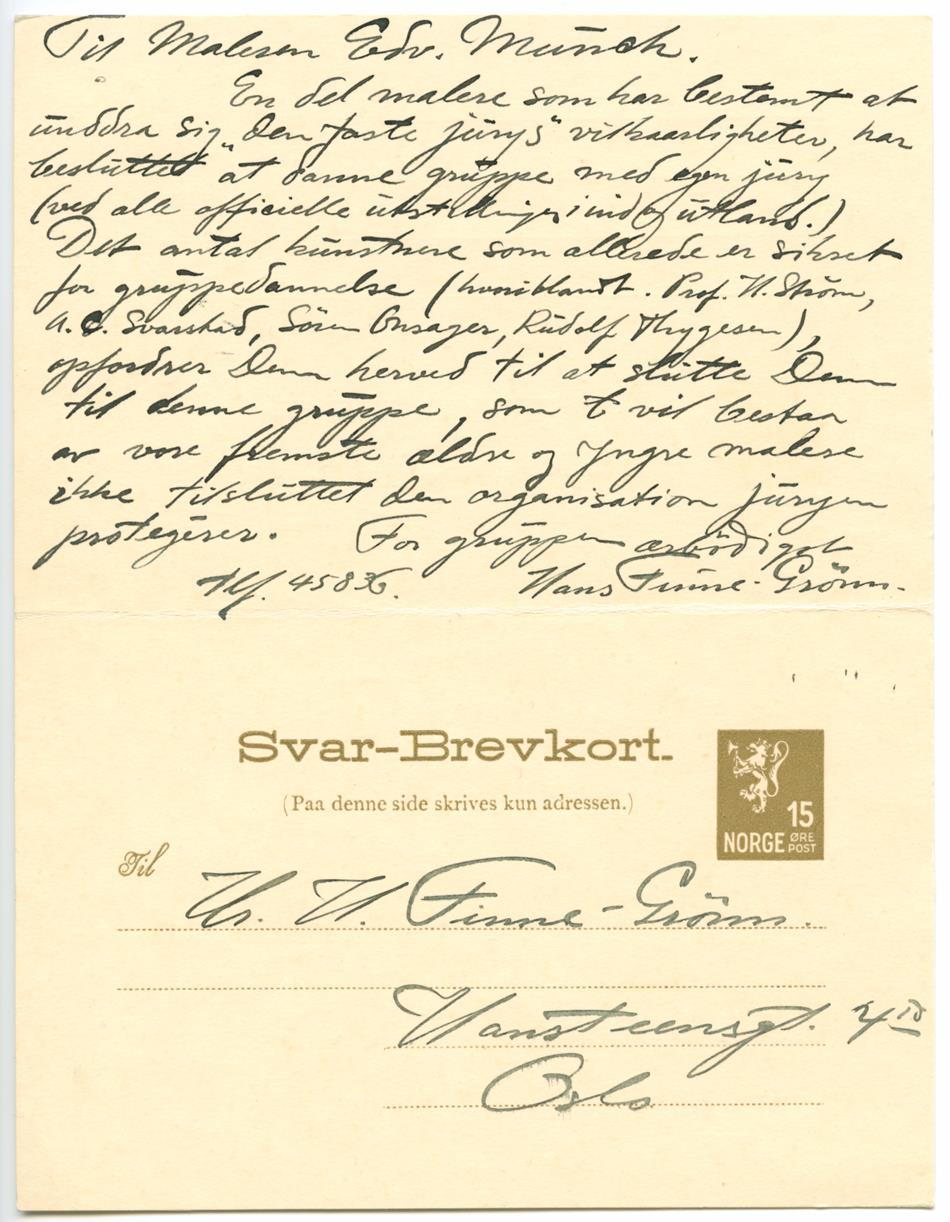 Til Maleren Edv. Munch.
En del malere som har bestemt at
unddra sig „den faste jurys” vilkaarligheter, har
besluttet at danne gruppe med egen jury
(ved alle officielle utstillinger i ind og utland.)
Det antal kunstnere som allerede er sikret
for gruppedannelse (hvoriblandt. Prof. H. Ström,
A. C. Svarstad, Sören Onsager, Rudolf Thygesen),
opfordrer Dem herved til at slutte Dem
til denne gruppe, som t vil bestaa
av vore fremste ældre og yngre malere
ikke tilsluttet den organisation juryen
protegerer. For gruppen ærbödigst
Tlf. 45836. Hans Finne-Grönn.
Svar-Brevkort.
(Paa denne side skrives kun adressen.)
15
NORGE ØRE POST
Til
Hr. H. Finne-Grönn.
Hansteensgt.
Oslo